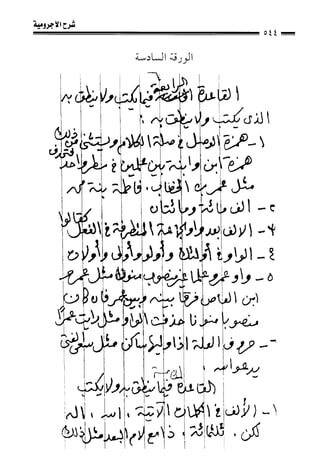 شرح الآجرومية
٥٤٤
الورقة السادسة
القاعدة الرابعة فيما يكتب ولا ينطق به
الذي يكتب ولا ينطق به :
١- همزة الوصل في صلة الكلام ويستثنى من ذلك
همزة ابن وابنة بين علمين في سطر واحد فتحذف
مثل عمر بن الخطاب، فاطمة بنة محمد
٢- الف مائة ومائتان
٣- الالف بعد واو الجماعة المتطرفة في الفعل كقالوا
٤- الواو في أولئك وأولو وأولى وأولات
٥- واو عمرو علما غير منصوب منون مثل عمرو
ابن العاص فرقا بينه وبين عمر فان كان
منصوبا منونا حذفت الواو مثل رأيت عمرًا
٦- حروف العلة اذا وليها ساكن مثل سعى الفتى
يدعو الله
القاعدة الخامسة فيما ينطق به ولا يكتب
١- الألف في الكلمات الآتية، الله، اله
لكن، ثلثمائة، ذا مع لام البعد مثل ذلك